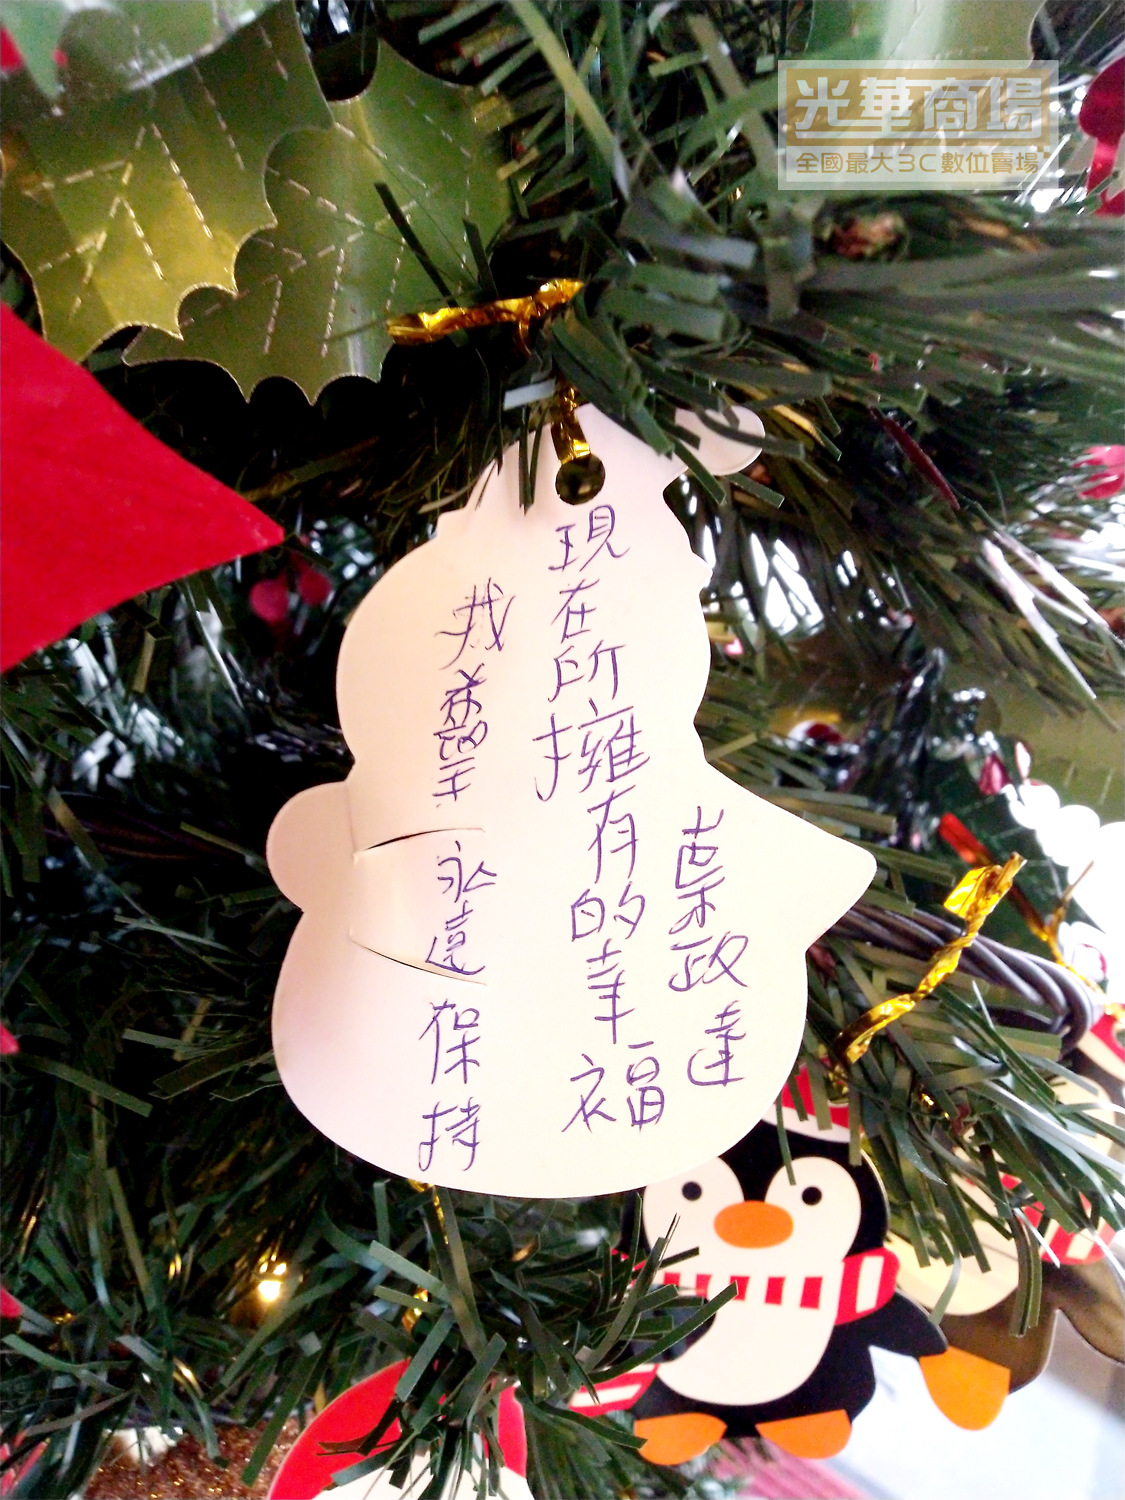 光華商場
全國最大3C數位賣場
我希望永遠保持
現在所擁有的幸福
葉政達